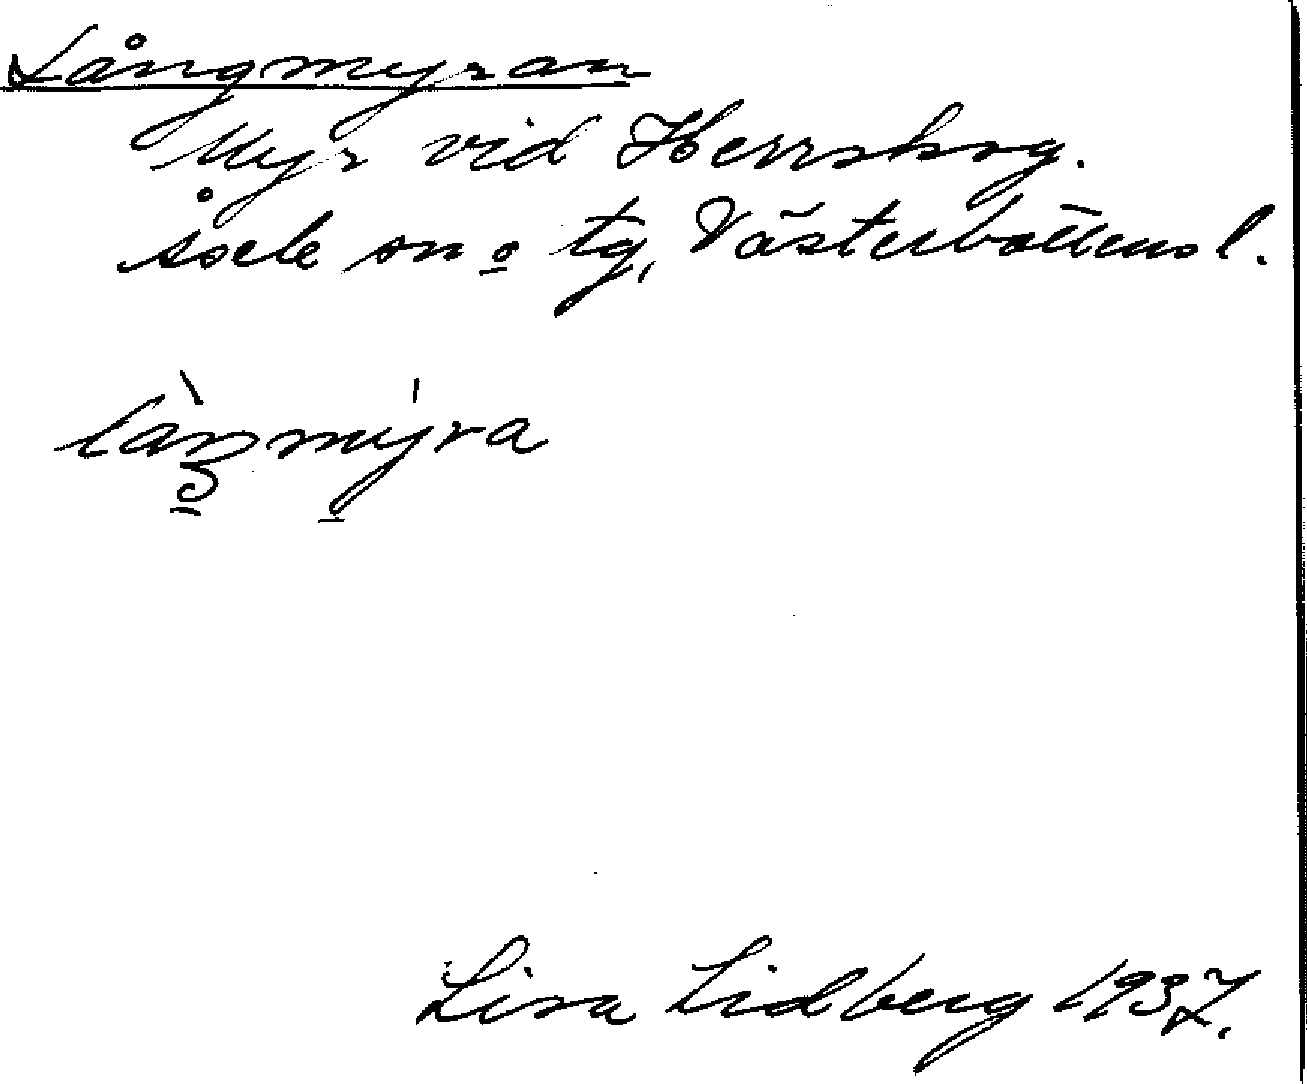 Långmyran
Myr vid Herrskog.
Åsele sn o tg, Västerbottens l.
làŋmýra
Lisa Lidberg 1937.